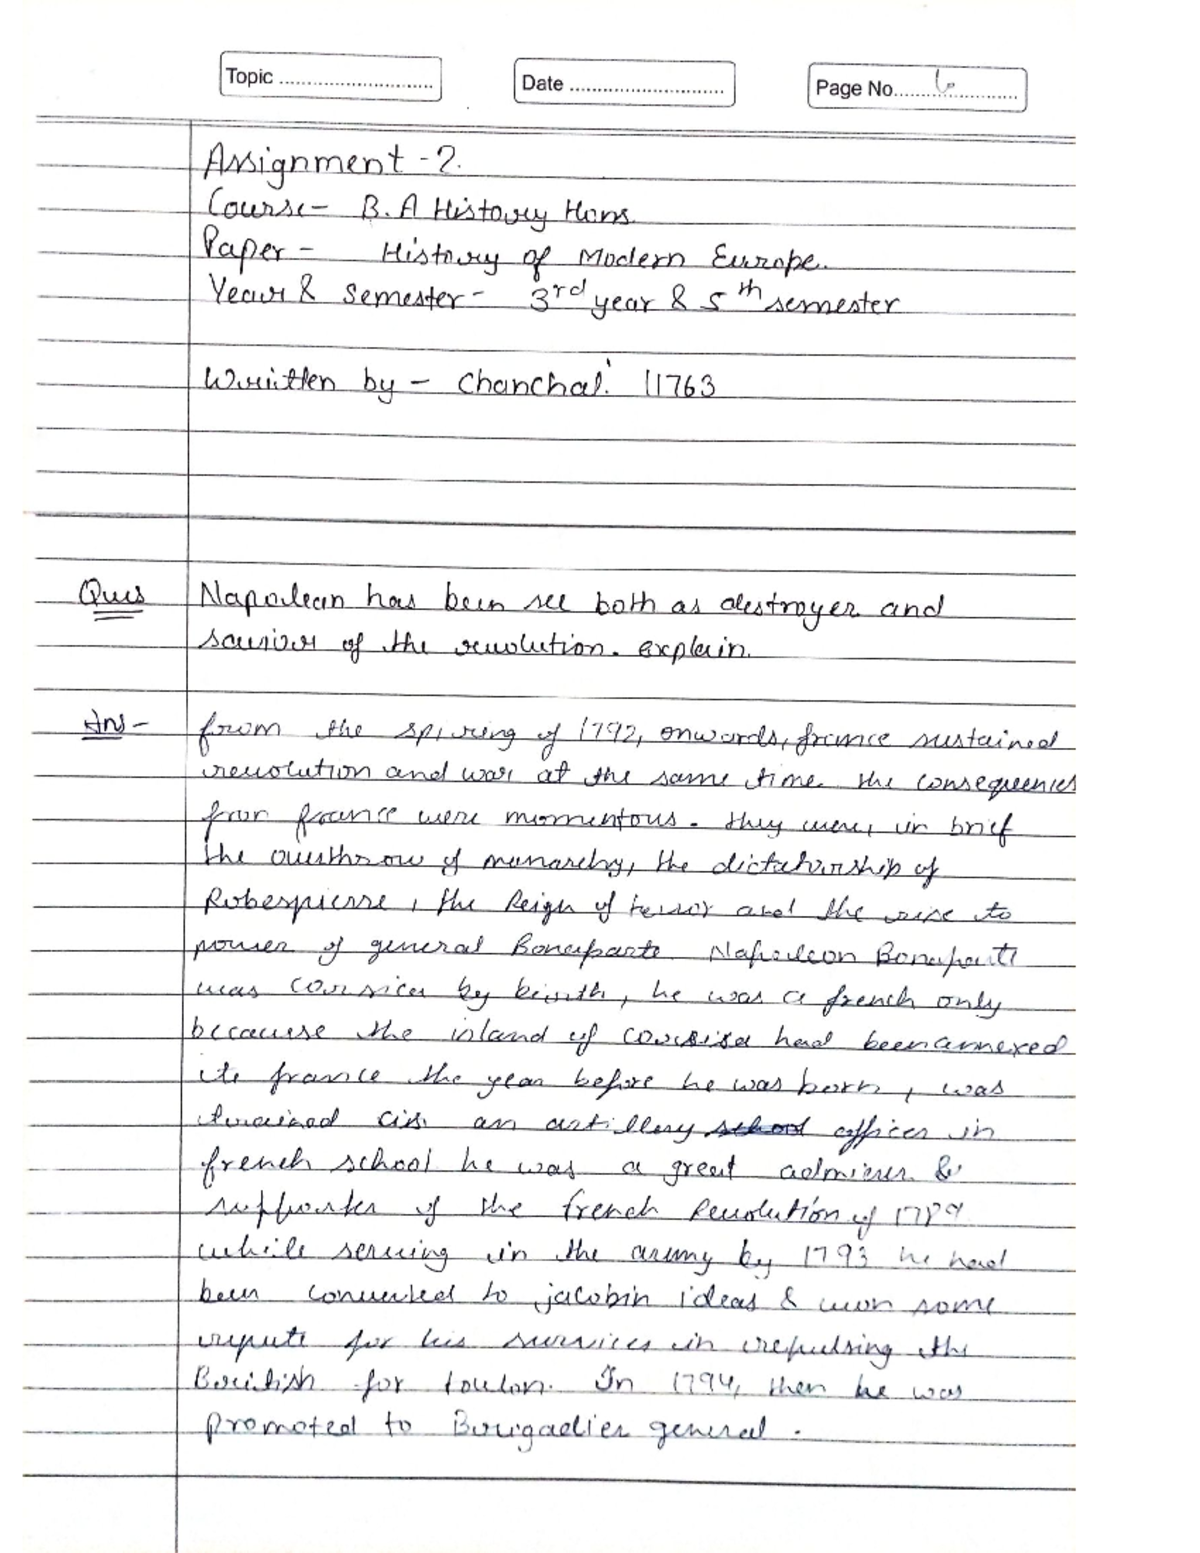 Topic ............................
Date ............................
Page No.......................
Assignment - 2.
Course - B.A History Hons.
Paper - History of Modern Europe.
Year & Semester - 3rd year & 5th semester
Written by - Chanchal. 11763
Ques Napolean has been see both as destroyer and
saviour of the revolution. explain.
Ans - from the spring of 1792, onwards, france sustained
revolution and war at the same time. the consequences
for france were momentous. they were, in brief
the overthrow of monarchy, the dictatorship of
Robespierre, the Reign of terror and the rise to
power of general Bonaparte. Napoleon Bonaparte
was Corsica by birth, he was a french only
because the island of had been annexed
to france the year before he was born, was
trained as an artillery school officer in
french school he was a great admirer &
supporter of the french Revolution of 1789.
while serving in the army by 1793 he had
been converted to jacobin ideas & won some
repute for his services in repulsing the
British for toulon. In 1794, then he was
promoted to Brigadier general.